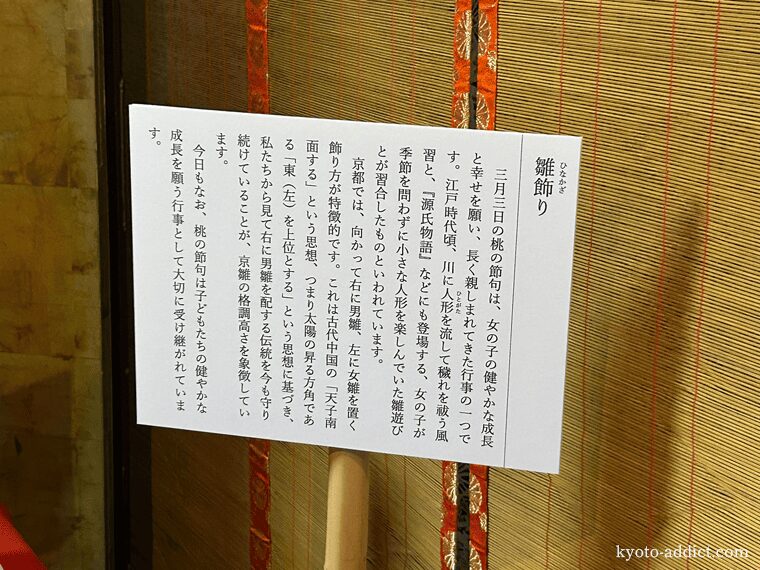 雛飾り
ひなかざ
三月三日の桃の節句は、女の子の健やかな成長
と幸せを願い、長く親しまれてきた行事の一つで
す。江戸時代頃、川に人形を流して穢れを祓う風
ひとがた
習と、『源氏物語』などにも登場する、女の子が
季節を問わずに小さな人形を楽しんでいた雛遊び
とが習合したものといわれています。
京都では、向かって右に男雛、左に女雛を置く
飾り方が特徴的です。これは古代中国の「天子南
面する」という思想、つまり太陽の昇る方角であ
る「東（左）を上位とする」という思想に基づき、
私たちから見て右に男雛を配する伝統を今も守り
続けていることが、京雛の格調高さを象徴してい
ます。
今日もなお、桃の節句は子どもたちの健やかな
成長を願う行事として大切に受け継がれていま
す。
kyoto-addict.com